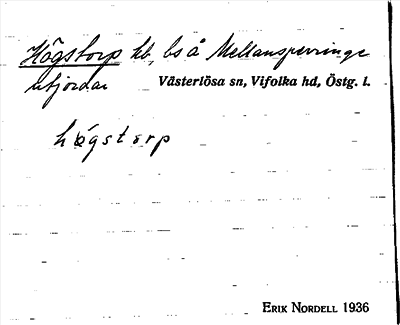 Högstorp hb, bs å Mellanspervinge
utjordar Västerlösa sn, Vifolka hd, Östg. l.
högstorp
ERIK NORDELL 1936